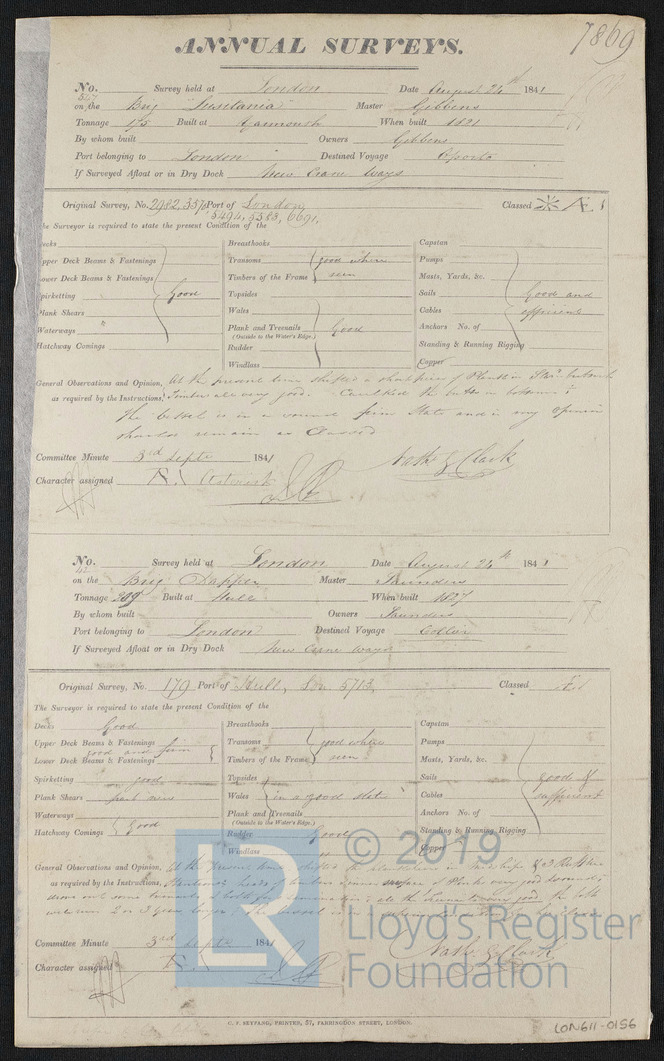 7869
ANNUAL SURVEYS.
No. 547 Survey held at London Date August 24th 1841
on the Brig "Lusitania" Master Gibbens
Tonnage 175 Built at Yarmouth When built 1821
By whom built Owners Gibbens
Port belonging to London Destined Voyage Oporto
If Surveyed Afloat or in Dry Dock New Crane Ways
Original Survey, No. 2982, 3570 Port of London Classed Æ 1
5494, 5583, 6691,
The Surveyor is required to state the present Condition of the
Decks Breasthooks Capstan
Upper Deck Beams & Fastenings Transoms good where Pumps
Lower Deck Beams & Fastenings Timbers of the Frame seen Masts, Yards, &c.
Spirketting Good Topsides Sails Good and
Plank Shears Wales Cables efficient
Waterways Plank and Treenails Good Anchors No. of
(Outside to the Water's Edge.)
Hatchway Comings Rudder Standing & Running Rigging
Windlass Copper
General Observations and Opinion, At the present time shifted a short piece of Plank in
as required by the Instructions, Timbers all very good. Caulked the butts in bottom &
the vessel is in a sound firm state and in my opinion
should remain as Classed
Committee Minute 3rd Septr 1841 Nathl G Clark
Character assigned Æ 1 Asterisk
No. 42 Survey held at London Date August 24th 1841
on the Brig Dapper Master Saunders
Tonnage 209 Built at Hull When built 1827
By whom built Owners Saunders
Port belonging to London Destined Voyage Collier
If Surveyed Afloat or in Dry Dock New Crane Ways
Original Survey, No. 179 Port of Hull, Lon 5713, Classed Æ 1
The Surveyor is required to state the present Condition of the
Decks Good Breasthooks Capstan
Upper Deck Beams & Fastenings good and firm Transoms good where Pumps
Lower Deck Beams & Fastenings Timbers of the Frame seen Masts, Yards, &c.
Spirketting good Topsides Sails good &
Plank Shears part new Wales in a good state Cables sufficient
Waterways Good Plank and Treenails Anchors No. of
(Outside to the Water's Edge.)
Hatchway Comings Rudder Good Standing & Running Rigging
Windlass Copper
General Observations and Opinion, At the present time shifted the
as required by the Instructions, heads of timbers surface of Planks very good
the very good, the bolts
2 or 3 years longer, the vessel is
Committee Minute 3rd Septr 1841 Nathl G Clark
Character assigned Æ 1
C. F. SEYFANG, PRINTER, 57, FARRINGDON STREET, LONDON.
LON611-0156
LR © 2019
Lloyd's Register
Foundation